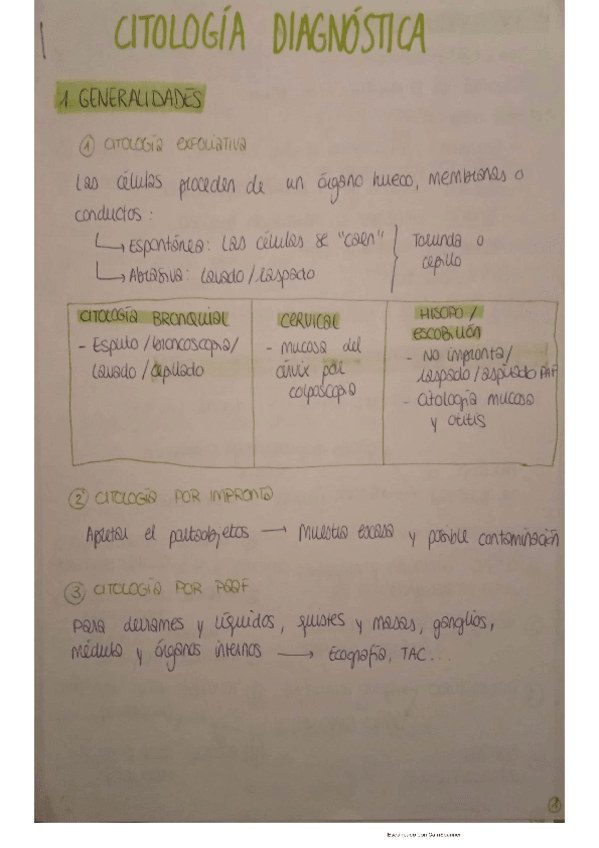 CITOLOGÍA DIAGNÓSTICA
1. GENERALIDADES
1 CITOLOGÍA EXFOLIATIVA
Las células proceden de un órgano hueco, membranas o
conductos:
Espontánea: Las células se "caen"
Abrasiva: lavado/raspado
Torunda o
cepillo
CITOLOGÍA BRONQUIAL
- Esputo/broncoscopia/
lavado/cepillado
CERVICAL
- mucosa del
cérvix por
colposcopia
HISOPO/
ESCOBILLÓN
- No impronta/
raspado/aspirado PAF
- Citología mucosa
y otitis
2 CITOLOGÍA POR IMPRONTA
Apretar el portaobjetos → Muestra escasa y posible contaminación
3 CITOLOGÍA POR PAAF
Para derrames y líquidos, quistes y masas, ganglios,
médula y órganos internos → Ecografía, TAC...
1
Escaneado con CamScanner